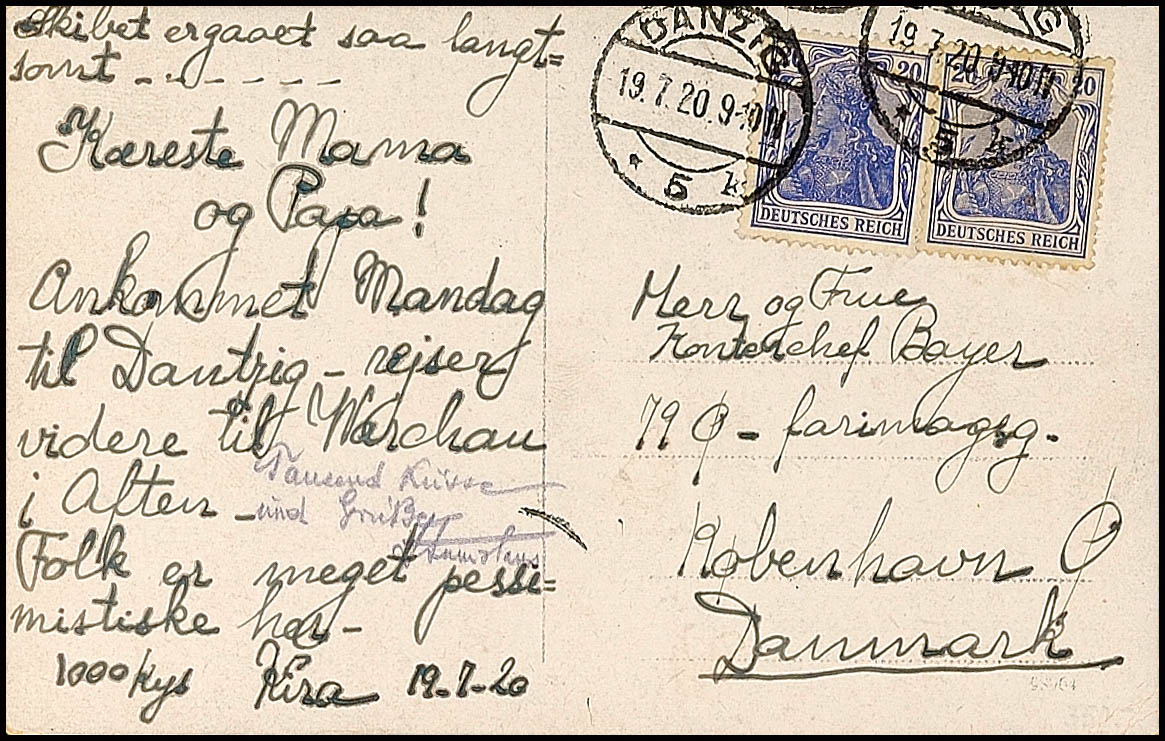 Skibet ergaaet saa langt=
somt - - - - - -
Kæreste Mama
og Papa!
Ankommet Mandag
til Dantzig - rejser
videre til Warchau
i Aften -
Tausend Küsse
und Grüße
Folk er meget pessi=
mistiske her -
1000 kys Kira 19-7-20
DANZIG
19.7.20.9-10N
* 5 k
19.7.20.9-10N
* 5 k
20
DEUTSCHES REICH
20 20
DEUTSCHES REICH
Herr og Frue
Kontorchef Bayer
79 Ø - farimagsg.
København Ø
Danmark